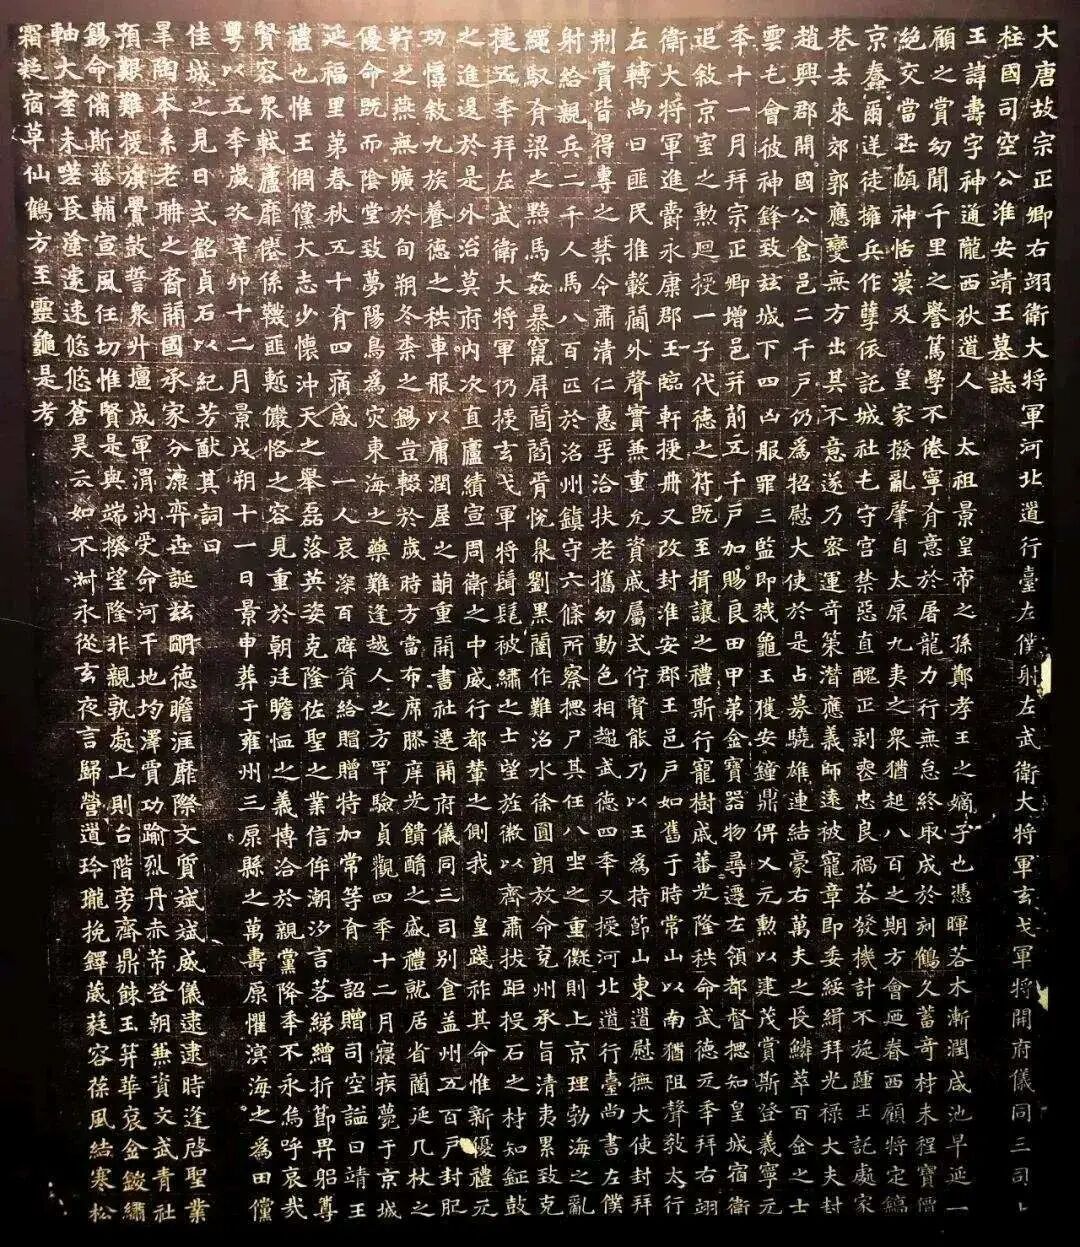 大唐故宗正卿右翊衛大將軍河北道行臺左僕射左武衛大將軍玄戈軍將開府儀同三司上
柱國司空公淮安靖王墓誌
王諱壽字神通隴西狄道人 太祖景皇帝之孫鄭孝王之嫡子也憑暉若木漸潤咸池早延一
顧之賞幼聞千里之譽篤學不倦寧有意於屠龍力行無怠終取成於刻鶴久蓄奇材未程寶價
絕交當世頤神恬漠及 皇家撥亂肇自太原九夷之衆猶起八百之期方會迺眷西顧將定鎬
京蠢爾送徒擁兵作孽依託城社毛守宮禁惡直醜正剥喪忠良禍若發機計不旋踵王託處家
巷去來郊郭應變無方出其不意遂乃密運奇策潛應義師遠被寵章即委綏緝拜光祿大夫封
趙興郡開國公食邑二千戶仍爲招慰大使於是占募驍雄連結豪右萬夫之長鱗萃百金之士
雲屯會彼神鋒致玆城下四凶服罪三監即戮龜玉獲安鐘鼎俾乂元勳以建茂賞斯登義寧元
年十一月拜宗正卿增邑并前五千戶加賜良田甲第金寶器物尋遷左領都督揔知皇城宿衛
追敘京室之勲迴授一子代德之符既至揖讓之禮斯行寵樹戚蕃光隆秩命武德元年拜右翊
衛大將軍進爵永康郡王臨軒授冊又改封淮安郡王邑戶如舊于時常山以南猶阻聲敎太行
左轉尚曰匪民推轂閫外聲實兼重允資戚屬式佇賢能乃以王爲持節山東道慰撫大使封拜
刑賞皆得專之禁令肅清仁惠孚洽扶老攜幼動色相趨武德四年又授河北道行臺尚書左僕
射給親兵二千人馬八百匹於洺州鎮守六條所察揔尸其任八坐之重儗則上京理勃海之亂
繩馭有梁之點馬姦暴竄屏閭閻胥悅泉劉黑闥作難洺水徐圓朗放命兗州承旨清夷累致克
捷五年拜左武衛大將軍仍授玄戈軍將髦被繡之士望旌徽以齊肅拔距投石之材知鉦鼓
之進退於是外治莫府內次直廬績宣周衛之中威行都輦之側我 皇踐祚其命惟新優禮元
功懽敘九族養德之秩車服以庸潤屋之萌重開書社遷開府儀同三司別食益州五百戶封肥
貯之燕無曠於旬朔冬柰之錫豈輟於歲時方當布席膠庠光饋酳之盛禮就居省闥延几杖之
優命既而陰堂致夢陽烏爲灾東海之藥難逢越人之方罕驗貞觀四年十二月寢疾薨于京城
延福里第春秋五十有四痛感 一人哀深百辟資給賵贈特加常等有 詔贈司空謚曰靖王
禮也惟王倜儻大志少懷沖天之舉磊落英姿克隆佐聖之業信侔潮汐言若綈繒折節畢躬尊
賢容衆載廬靡倦係韈匪慙儼恪之容見重於朝廷瞻恤之義博洽於親黨降年不永烏呼哀哉
粵以五年歲次辛卯十二月景戌朔十一日景申葬于雍州三原縣之萬壽原懼溟海之爲田儻
佳城之見日式銘貞石以紀芳猷其詞曰
皐陶本系老聃之裔開國承家分源弈世誕玆明德瞻涯靡際文質斌斌威儀逮逮時逢啓聖業
預艱難援旗舋鼓誓衆升壇成軍渭汭受命河干地均澤賈功踰烈丹赤芾登朝兼資文武青社
錫命備斯蕃輔宣風任切惟賢是與端揆望隆非親孰處上則台階旁齊鼎餗玉茾華衮金鍐繡
軸大耋未嗟長塗遽速悠悠蒼昊云如不淑永從玄夜言歸營道玲瓏挽鐸葳蕤容葆風結寒松
霜凝宿草仙鶴方至靈龜是考